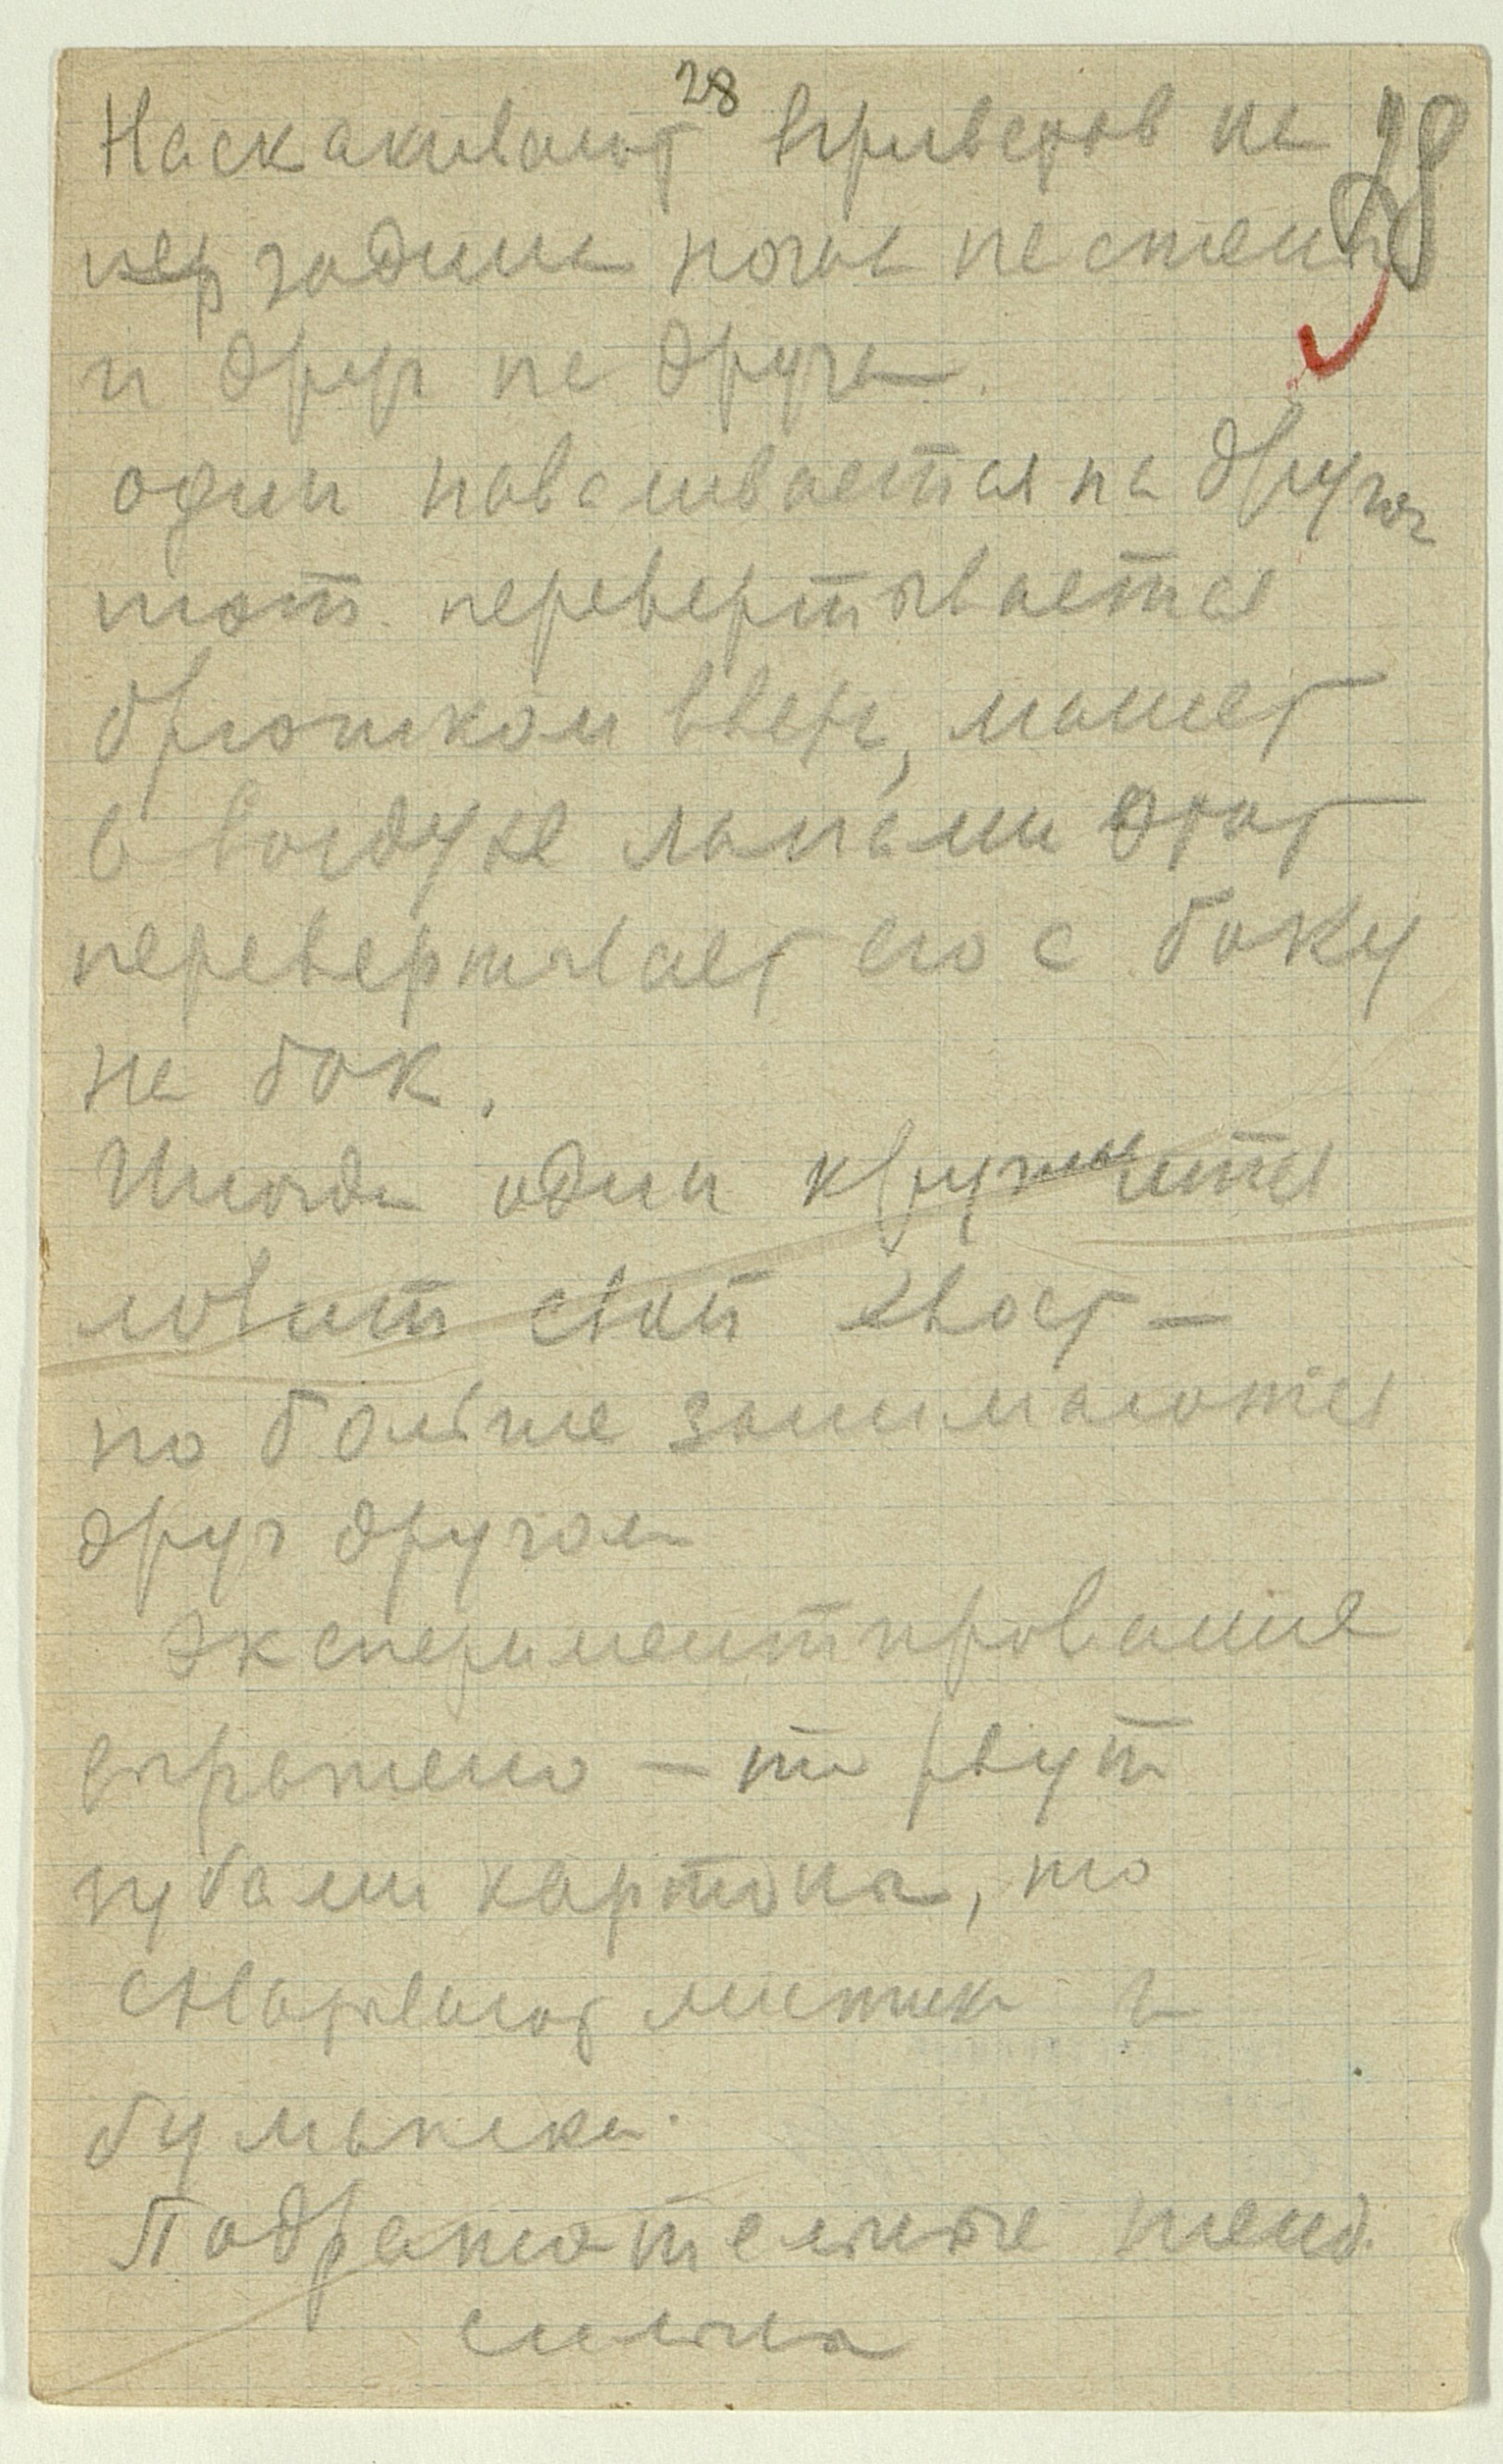 28
Наскакивают вприверов на 28
пер задние ноги на стены
и друг на друга.
один наваливается на другог
тот перевертывается
брюшком вверх, машет
в воздухе лапами этот
перевертывает его с боку
на бок.
Иногда один кружится
ловит свой хвост —
но больше занимаются
друг другом
Экспериментирование
выражено — то рвут
зубами картоны, то
схватывают листики и
бумажки.
Подражательные тенд.
сильны